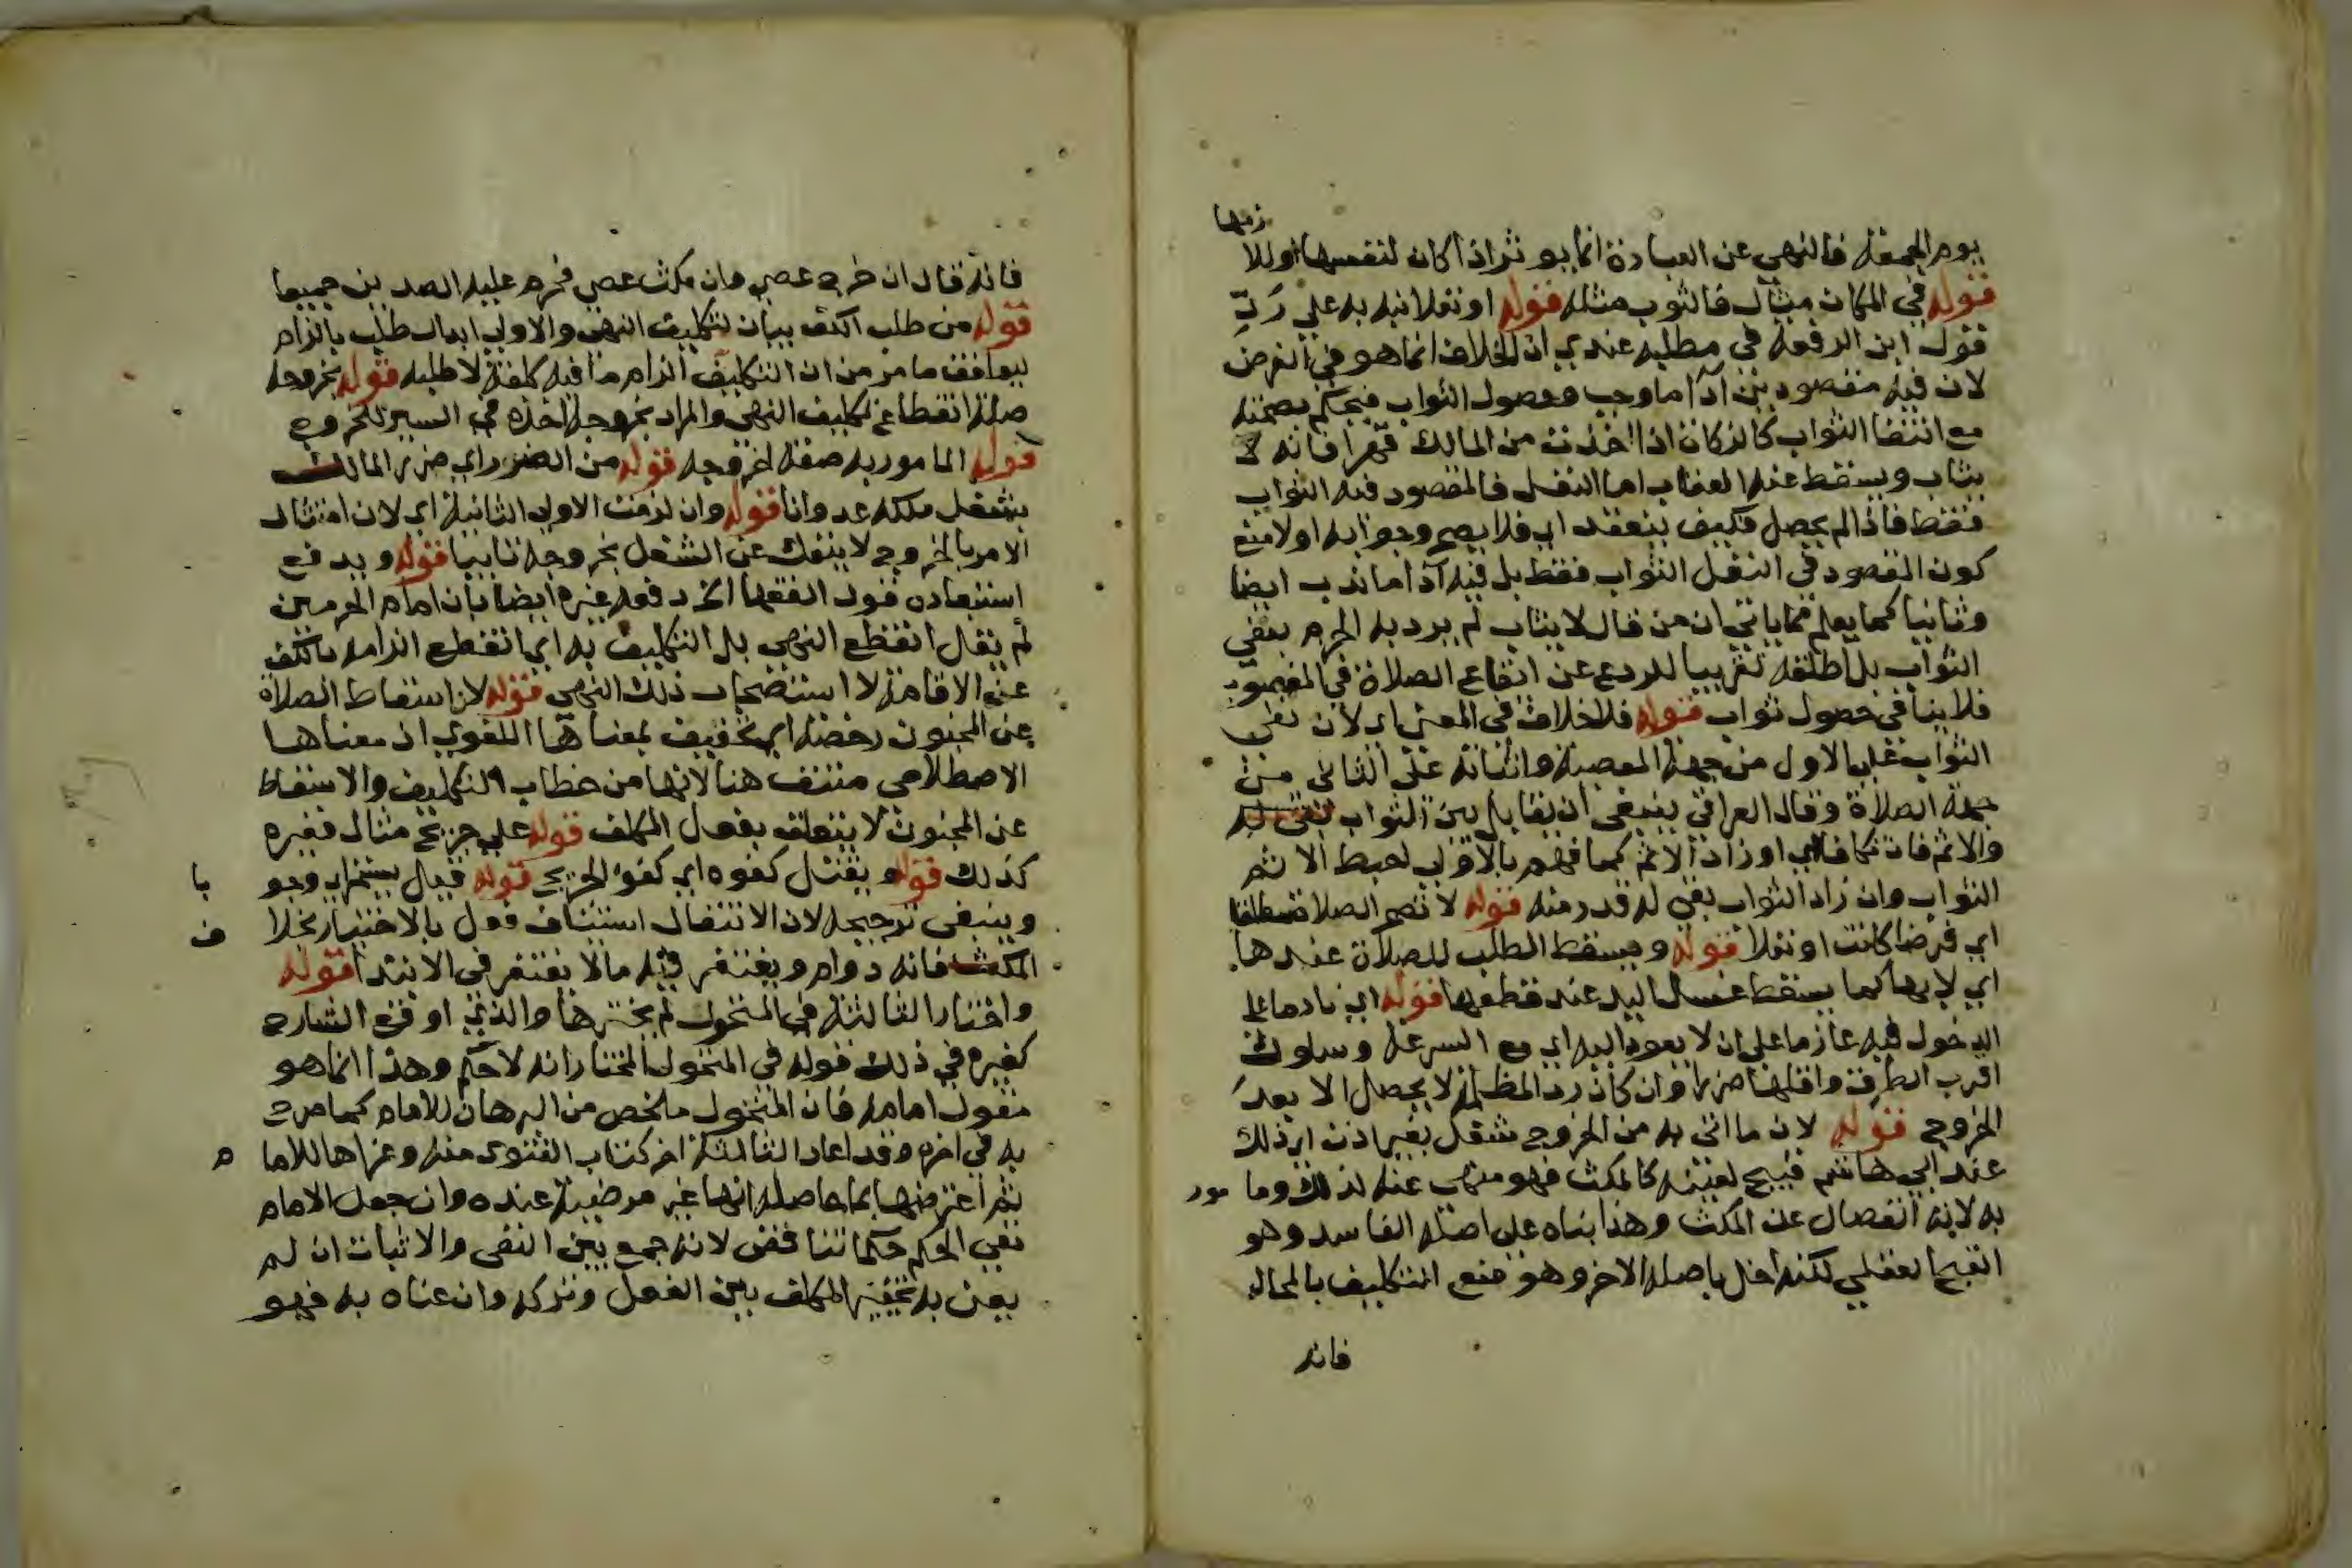 يوم الجمعة فالنهي عن العبادة انما يوثر اذا كان لنفسها او للا
زمها
قوله في المكان مثال فالثوب مثله قوله او نفلا نبه به علي رد
قول ابن الرفعة في مطلبه عندي ان الخلاف انما هو في الفرض
لان فيه مقصودين اداما وجب وحصول الثواب فيحكم بصحته
مع انتفا الثواب كالزكاة اذا اخذت من المالك قهرا فانه لا
يثاب ويسقط عنه العقاب اما النفل فالمقصود فيه الثواب
فقط فاذا لم يحصل فكيف ينعقد اي فلا يصح وجوابه اولا منع
كون المقصود في النفل الثواب فقط بل فيه اداما ندب ايضا
وثانيا كما يعلم مماياتي ان من قال لا يثاب لم يرد به الجزم بنفي
الثواب بل اطلقه تقريبا للردع عن ايقاع الصلاة في المغصوب
فلا ينافي حصول ثواب قوله فلا خلاف في المعني اي لان نفي
الثواب علي الاول من جهة المعصية واثباته علي الثاني من
جهة الصلاة وقال العراقي ينبغي ان يقابل بين الثواب
والاثم فان تكافاي او زاد الاثم كما فهم بالاولي احبط الاثم
الثواب وان زاد الثواب بقي له قدر منه قوله لا تصح الصلاة مطلقا
اي فرضا كانت او نفلا قوله ويسقط الطلب للصلاة عندها
اي لا بها كما يسقط غسل اليد عند قطعها قوله اي نادما علي
الدخول فيه عازما علي ان لا يعود اليه اي مع السرعة وسلوك
اقرب الطرق واقلها ضررا وان كان رد المظلمة لا يحصل الا بعد
الخروج قوله لان ما اتي به من الخروج شغل بغير اذن اي ذلك
عند ابي هاشم قبيح لعينه كالمكث فهو منهي عنه لذلك وما مور
به لانه انفصال عن المكث وهذا بناه علي اصله الفاسد وهو
القبح العقلي لكنه اخل باصله الاخر وهو منع التكليف بالمحال
فانه
فانه قال ان خرج عصي وان مكث عصي فحرم عليه الضدين جميعا
قوله من طلب الكف بيان لتكليف النهي والاولي ابدال طلب بالزام
ليوافق ما مر من ان التكليف الزام ما فيه كلفة لا طلبه قوله بخروجه
صلة انقطاع تكليف النهي والمراد بخروجه اخذه في السير للخروج
قوله المامور به صفة لخروجه قوله من الضرر اي ضرر المالك
بشغل ملكه عدوانا قوله وان لزمت الاولي الثانية اي لان امتثال
الامر بالخروج لا ينفك عن الشغل بخروجه تايبا قوله ويدفع
استبعاده قول الفقها الخ دفعه غيره ايضا بان امام الحرمين
لم يقل انقطع النهي بل التكليف به اي انقطع الزامه بالكف
عن الاقامة لا استصحاب ذلك النهي قوله لان اسقاط الصلاة
عن المجنون رخصة اي تخفيف بمعناها اللغوي اذ معناها
الاصطلاحي منتف هنا لانها من خطاب التكليف والاسقاط
عن المجنون لا يتعلق بفعل المكلف قوله علي جريح مثال فغيره
كذلك قوله ويقتل كفوه اي كفؤ الجريح قوله فقيل يستمر اي وجو با
وينبغي ترجيحه لان الانتقال استئناف فعل بالاختيار بخلا ف
المكث فانه دوام ويغتفر فيه مالا يغتفر في الابتدا قوله
واختار الثالثة في المنخول لم يخترها والذي اوقع الشارح
كغيره في ذلك قوله في المنخول المختار انه لا حكم وهذا انما هو
مقول امامه فان المنخول ملخص من البرهان للامام كما صرح
به في اخره وقد اعاد الثالثة اخر كتاب الفتوي منه وعزاها للاما م
ثم اعترضها بما حاصله انها غير مرضية عنده وان جعل الامام
نفي الحكم حكما تناقض لانه جمع بين النفي والاثبات ان لم
يعن به تخيير المكلف بين الفعل وتركه وان عناه به فهو